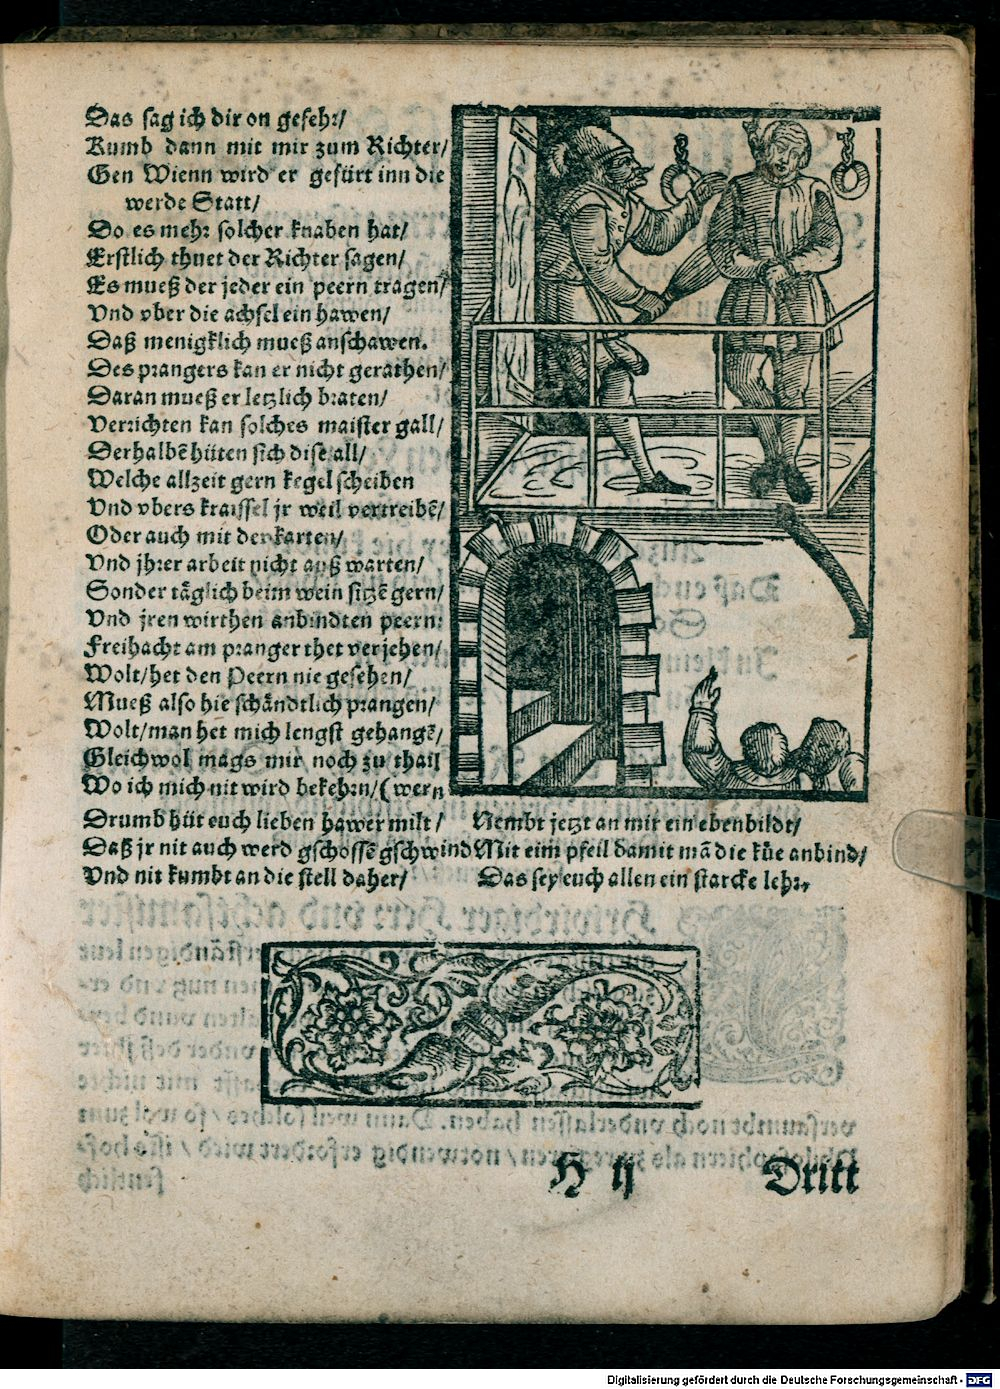 Das sag ich dir on gefehr/
Kumb dann mit mir zum Richter/
Gen Wienn wird er gefürt inn die
werde Statt/
Do es mehr solcher knaben hat/
Erstlich thuet der Richter sagen/
Es mueß der jeder ein peern tragen/
Vnd vber die achsel ein hawen/
Daß menigklich mueß anschawen.
Des prangers kan er nicht gerathen/
Daran mueß er letzlich braten/
Verrichten kan solches maister gall/
Derhalbẽ hüten sich dise all/
Welche allzeit gern kegel scheiben
Vnd vbers kraissel jr weil vertreibẽ/
Oder auch mit der karten/
Vnd jhrer arbeit nicht auß warten/
Sonder täglich beim wein sitzẽ gern/
Vnd jren wirthen anbindten peern:
Freihacht am pranger thet verjehen/
Wolt/het den Peern nie gesehen/
Mueß also hie schändtlich prangen/
Wolt/man het mich lengst gehangẽ/
Gleichwol mags mir noch zu thail
Wo ich mich nit wird bekehrn/(wern
Drumb hüt euch lieben hawer milt/
Daß jr nit auch werd gschossẽ gschwind
Vnd nit kumbt an die stell daher/
Nembt jetzt an mir ein ebenbildt/
Mit eim pfeil damit mã die küe anbind/
Das sey euch allen ein starcke lehr,
H ij
Dritt
Digitalisierung gefördert durch die Deutsche Forschungsgemeinschaft - DFG